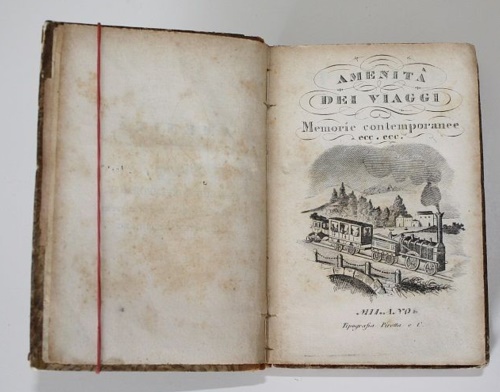 AMENITÀ
DEI VIAGGI
Memorie contemporanee
ecc. ecc.
MILANO
Tipografia Pirotta e C.